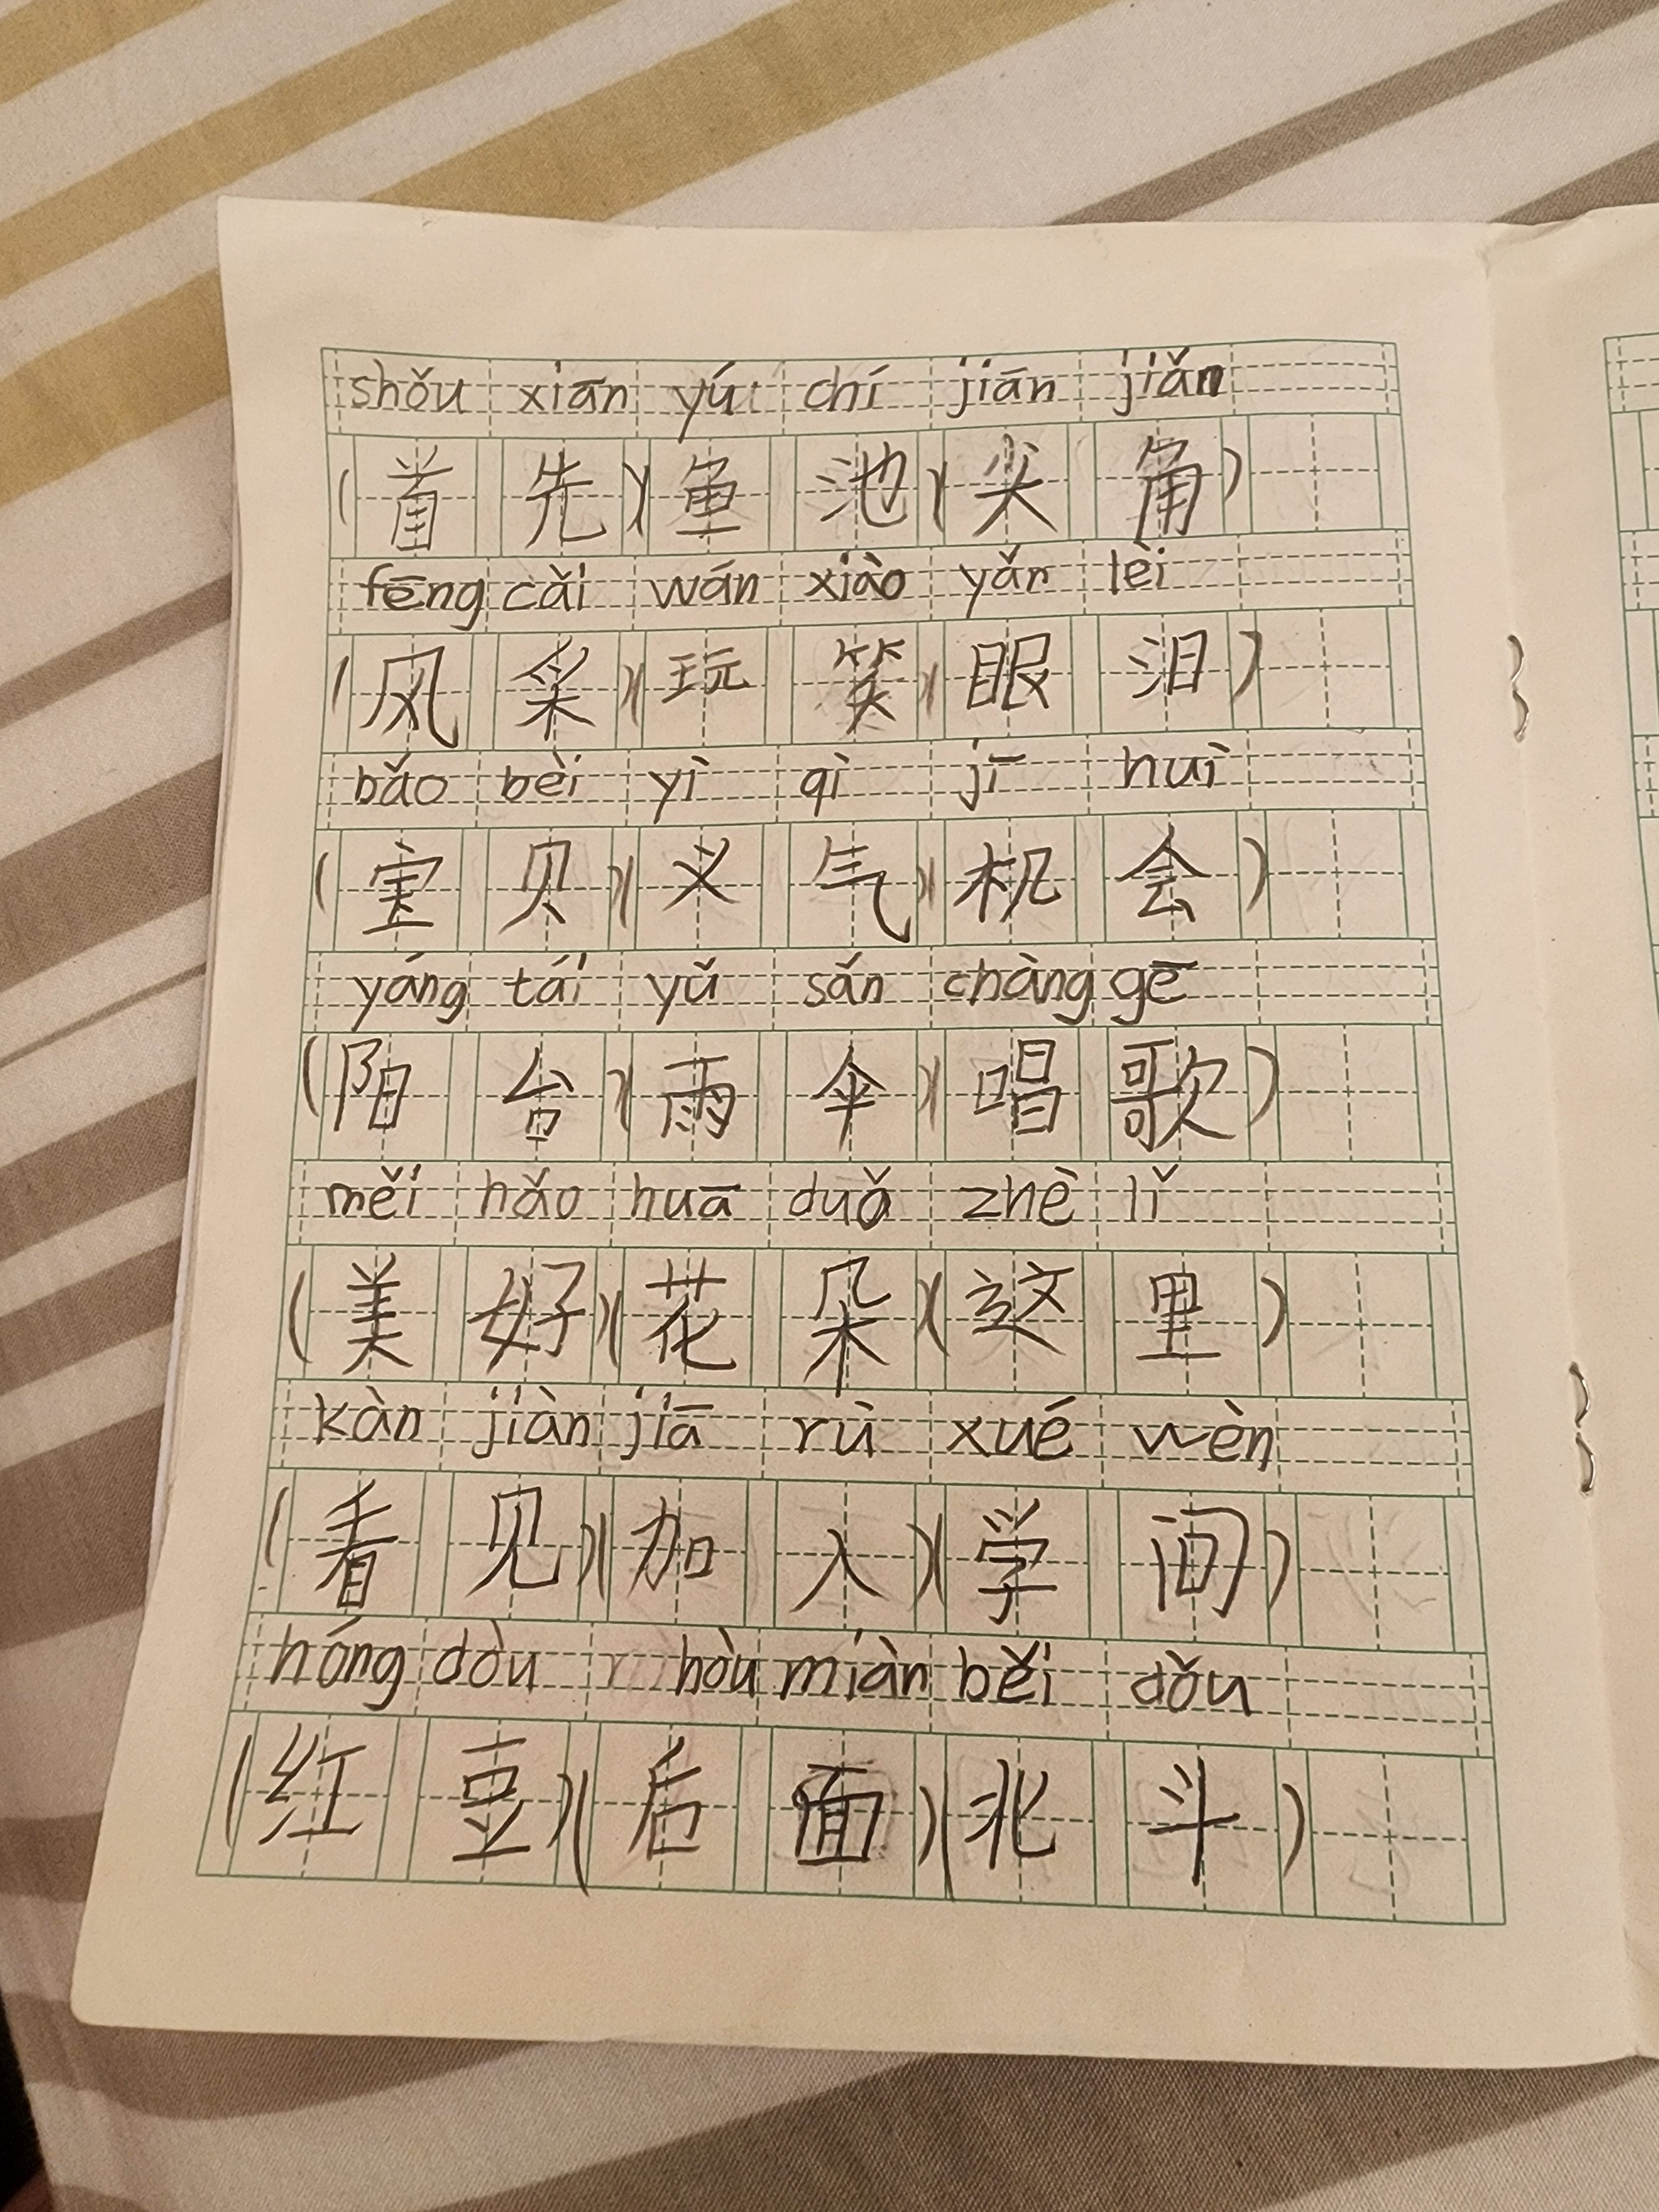 shǒu xiān yú chí jiān jiǎn
(首先)(鱼池)(尖角)
fēng cǎi wán xiào yǎn lèi
(风采)(玩笑)(眼泪)
bǎo bèi yì qì jī huì
(宝贝)(义气)(机会)
yáng tái yǔ sǎn chàng gē
(阳台)(雨伞)(唱歌)
měi hǎo huā duǒ zhè lǐ
(美好)(花朵)(这里)
kàn jiàn jiā rù xué wèn
(看见)(加入)(学问)
hóng dòu hòu miàn běi dǒu
(红豆)(后面)(北斗)